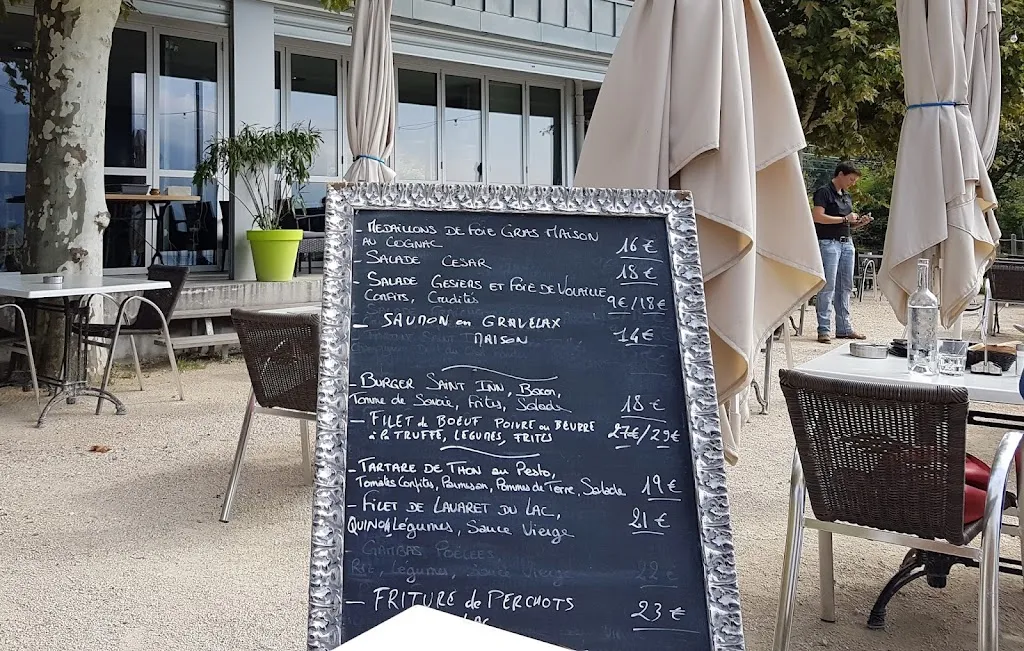 - MEDAILLONS DE FOIE GRAS MAISON
AU COGNAC 16 €
- SALADE CESAR 18 €
- SALADE GESIERS ET FOIE DE VOLAILLE
CONFITS, Crudités 9€/18€
- SAUMON en GRAVELAX
MAISON 14€
- BURGER SAINT INN, Bacon,
Tomme de Savoie, frites, Salade 18 €
- FILET de BOEUF POIVRE ou BEURRE
à la TRUFFE, LEGUMES, FRITES 27€/29€
- TARTARE DE THON au Pesto,
Tomates Confites, Parmesan, Pommes de Terre, Salade 19 €
- FILET DE LAVARET DU LAC,
QUINOA, Légumes, Sauce Vierge 21 €
- GAMBAS POÊLEES
Riz, Légumes, Sauce Vierge 22 €
- FRITURE de PERCHOTS 23 €
LAC